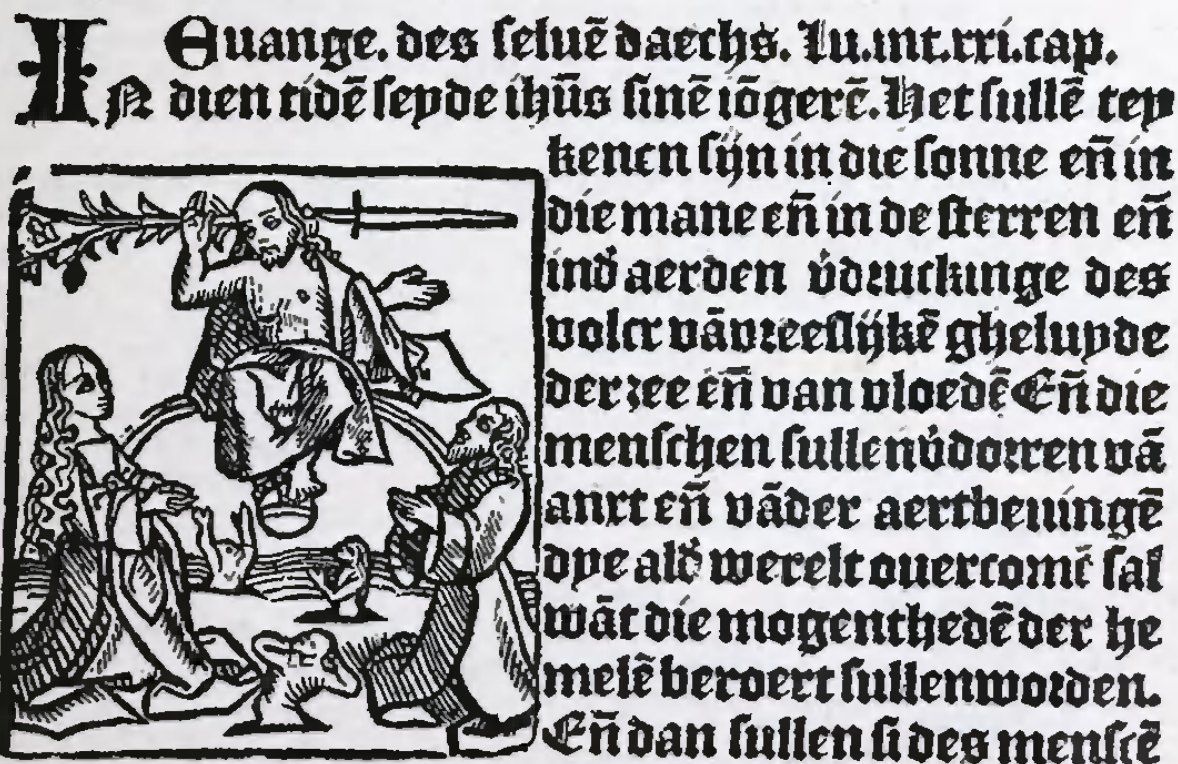 Euange. des seluē daechs. Lu.int.xxi.cap.
IN dien tidē seyde ihūs sinē iōgerē. Het sullē tey
kenen sijn in die sonne eñ in
die mane eñ in de sterren eñ
ind̉ aerden v̉druckinge des
volcx vāvreeslijkē gheluyde
der zee eñ van vloedē Eñ die
menschen sullen v̉dorren vā
anxt eñ vāder aertbeuingē
dye ald̉ werelt ouercomē sal
wāt die mogenthedē der he
melē beroert sullen worden.
Eñ dan sullen si des menscē